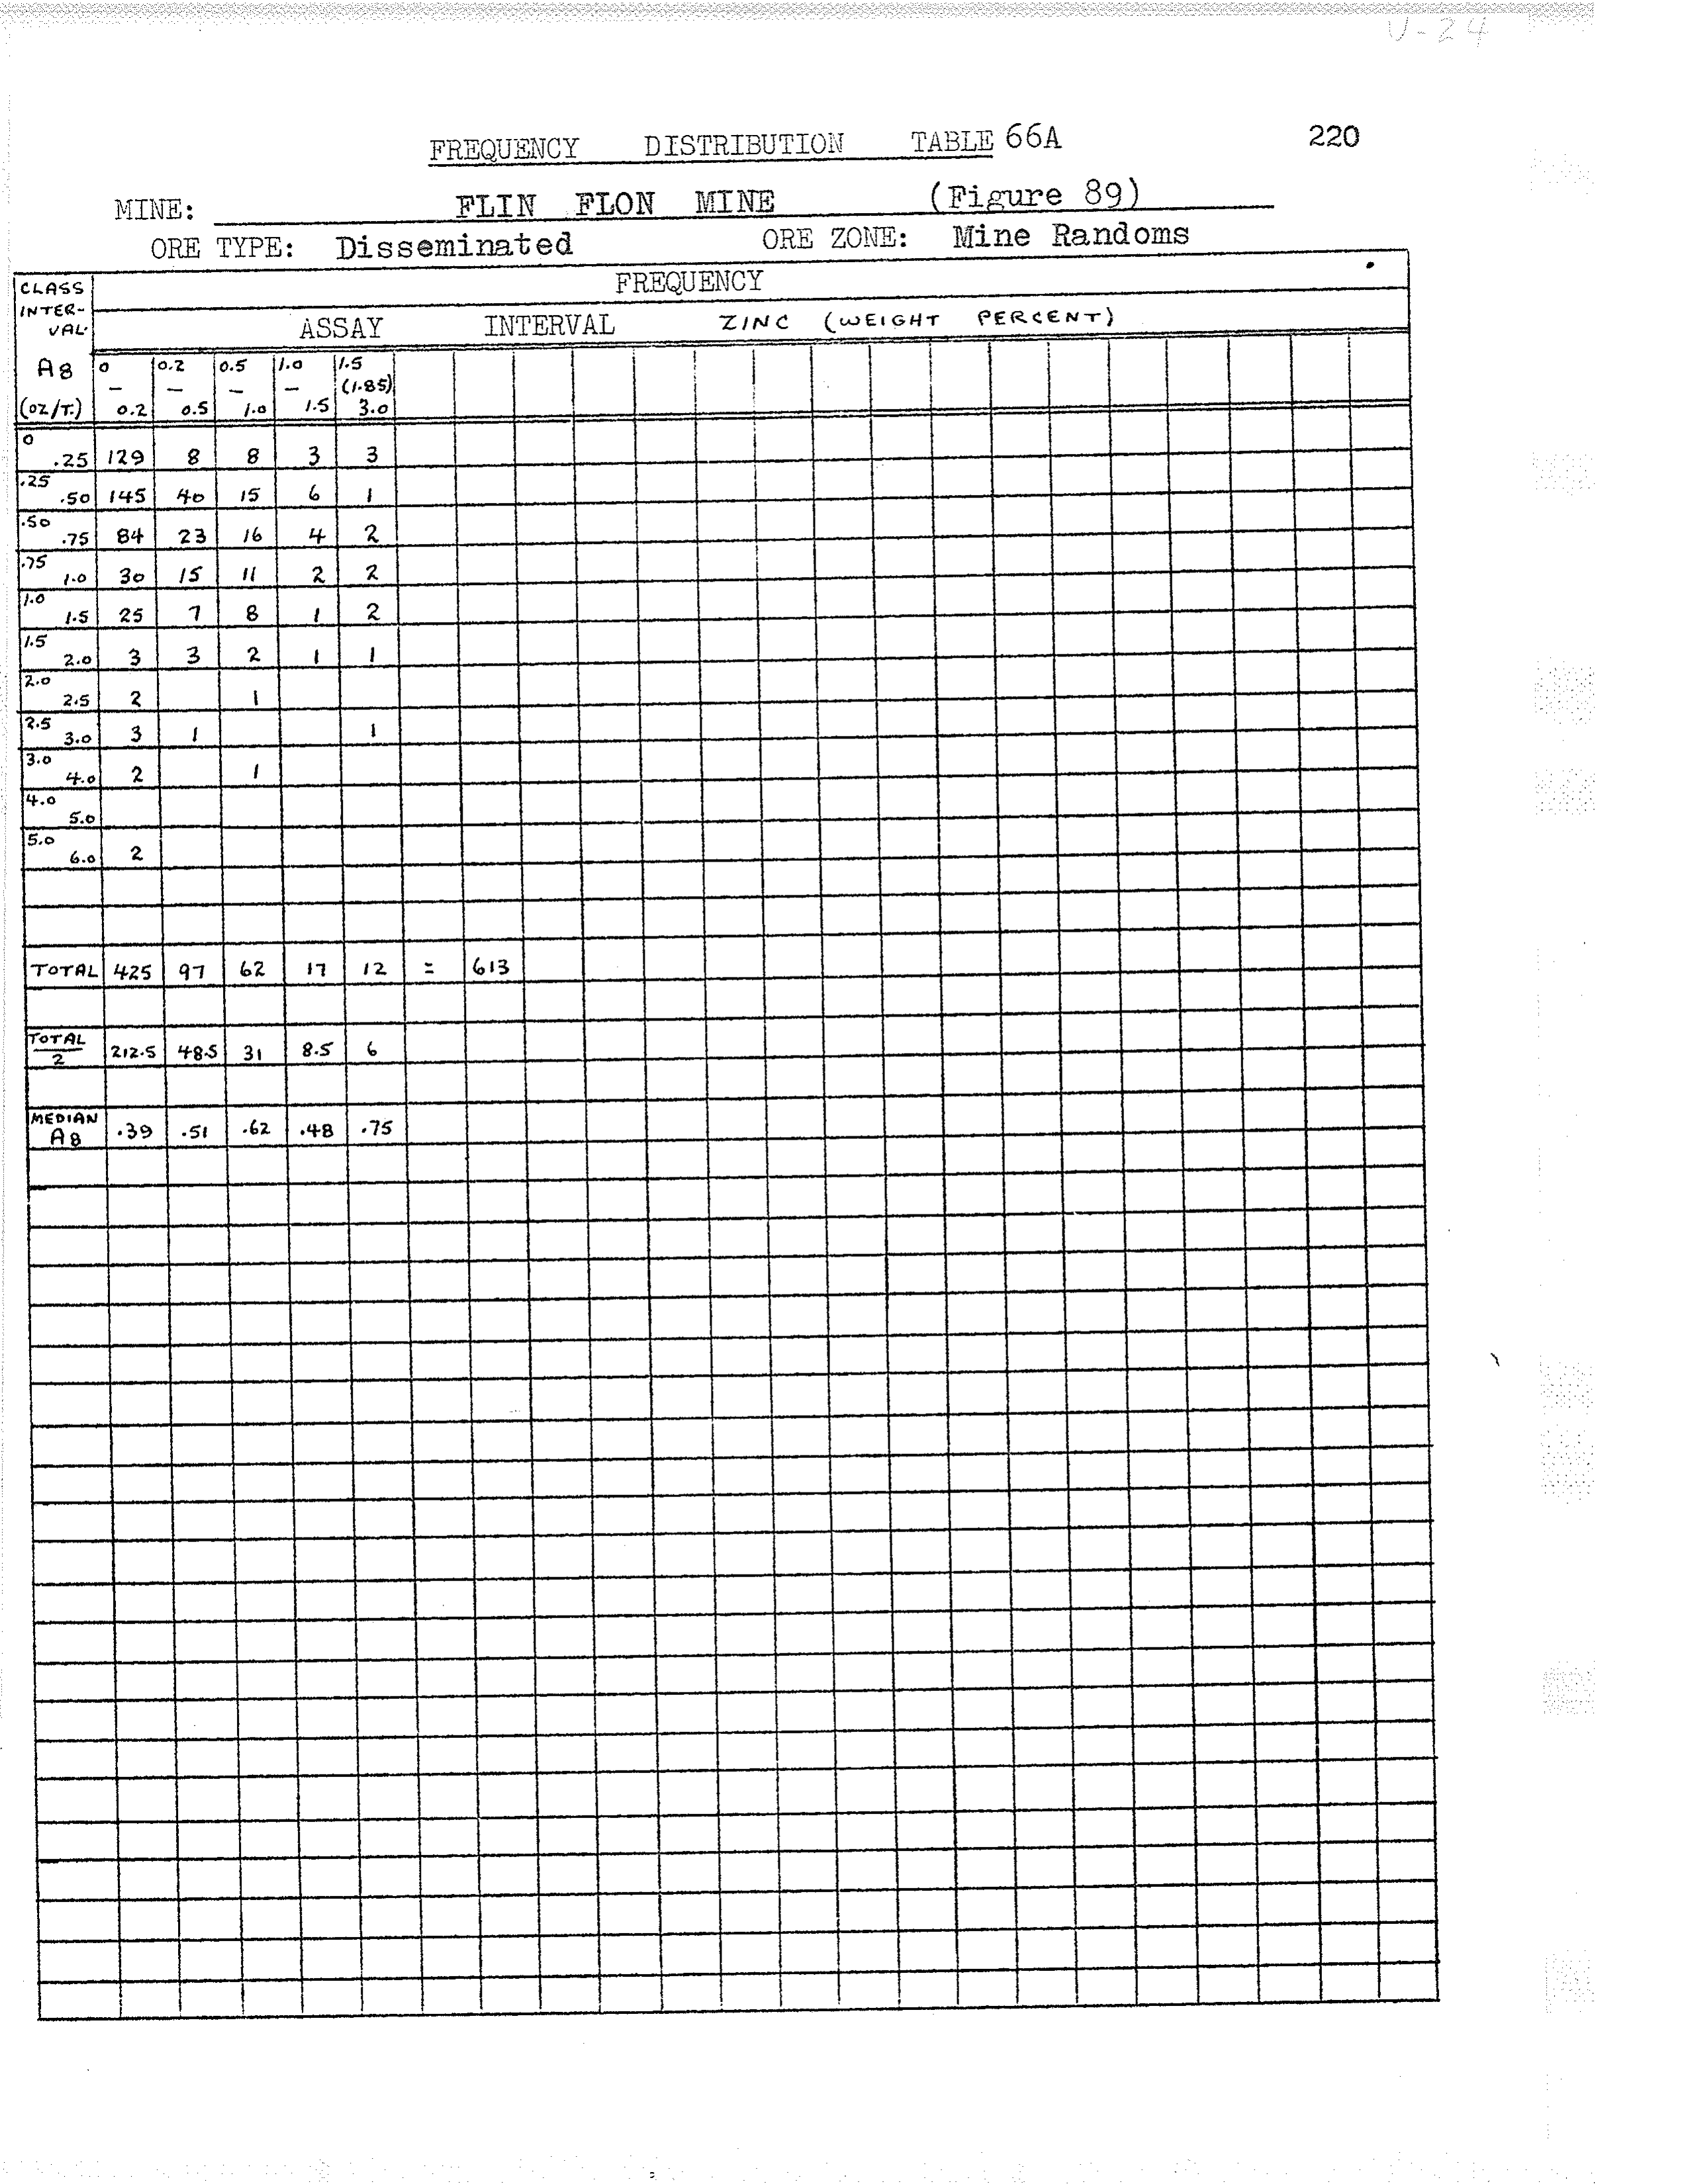 U-24
FREQUENCY DISTRIBUTION TABLE 66A 220
MINE: FLIN FLON MINE (Figure 89)
ORE TYPE: Disseminated ORE ZONE: Mine Randoms
CLASS INTER- VAL FREQUENCY
ASSAY INTERVAL ZINC (WEIGHT PERCENT)
Ag 0 0.2 0.5 1.0 1.5
– – – – (1.85)
(OZ/T.) 0.2 0.5 1.0 1.5 3.0
0
.25 129 8 8 3 3
.25
.50 145 40 15 6 1
.50
.75 84 23 16 4 2
.75
1.0 30 15 11 2 2
1.0
1.5 25 7 8 1 2
1.5
2.0 3 3 2 1 1
2.0
2.5 2 1
2.5
3.0 3 1 1
3.0
4.0 2 1
4.0
5.0
5.0
6.0 2
TOTAL 425 97 62 17 12 = 613
TOTAL
2 212.5 48.5 31 8.5 6
MEDIAN
Ag .39 .51 .62 .48 .75